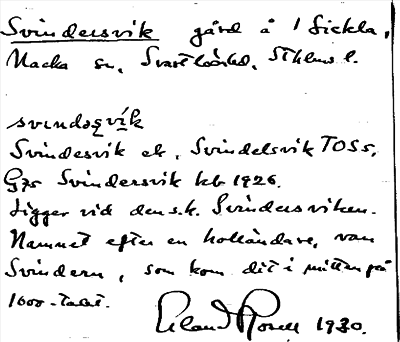 Svindersvik gård å 1 Sickla,
Nacka sn, Svartlösa hd, Sthlms l.
svindəʂvík
Svindesvik ek, Svindelsvik TOSs,
G75 Svindersvik kb 1926.
Ligger vid den s.k. Svindersviken.
Namnet efter en holländare, van
Svindern, som kom dit i mitten på
1600-talet.
Erland Rosell 1930.